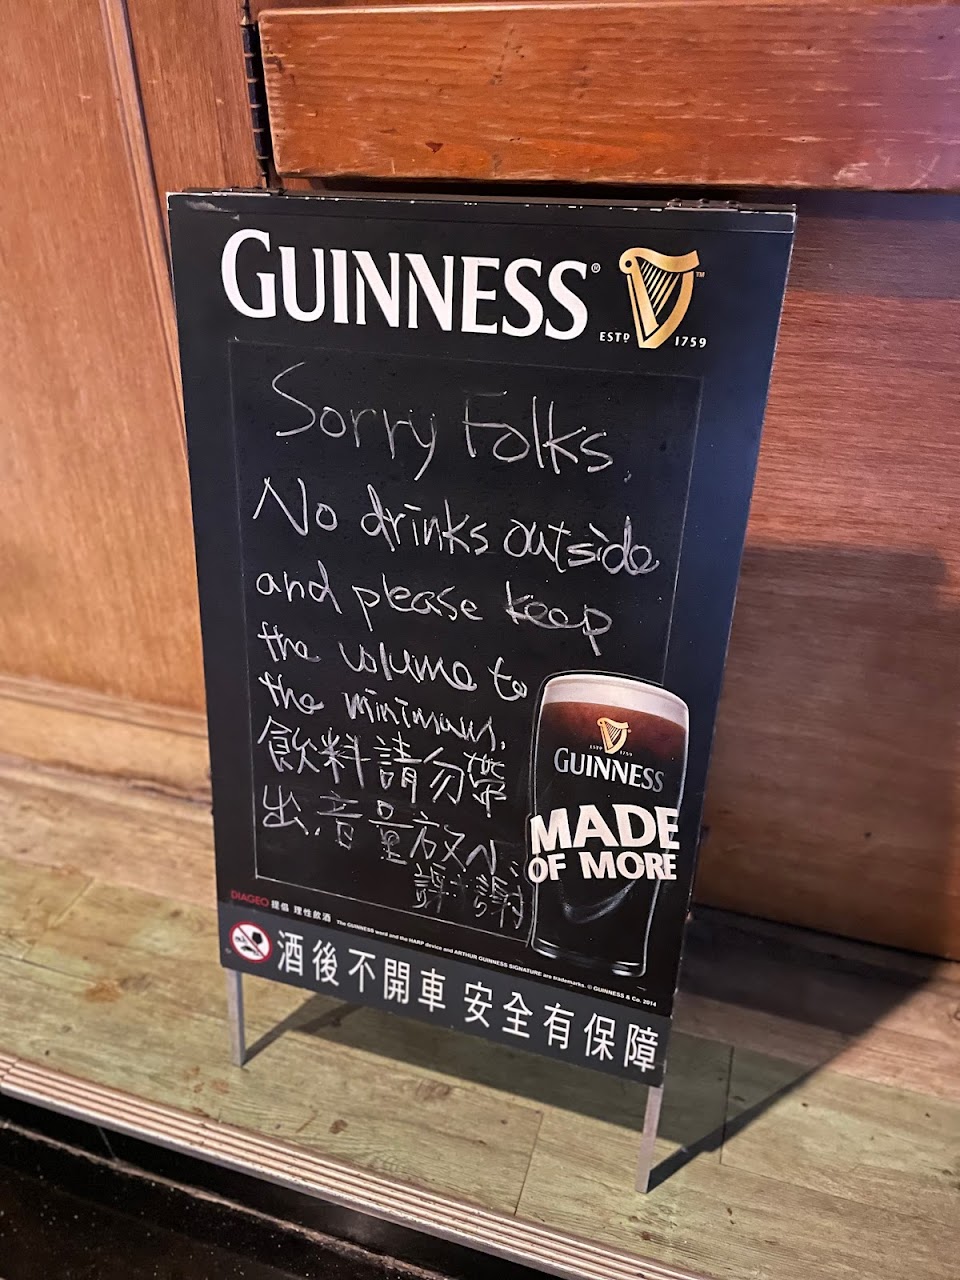 GUINNESS®
ESTD 1759 ™
Sorry Folks,
No drinks outside
and please keep
the volume to
the minimum.
飲料請勿帶
出,音量放小
謝謝
GUINNESS
MADE
OF MORE
DIAGEO 提倡 理性飲酒
The GUINNESS word and the HARP device and ARTHUR GUINNESS SIGNATURE are trademarks. © GUINNESS & Co. 2014
酒後不開車 安全有保障